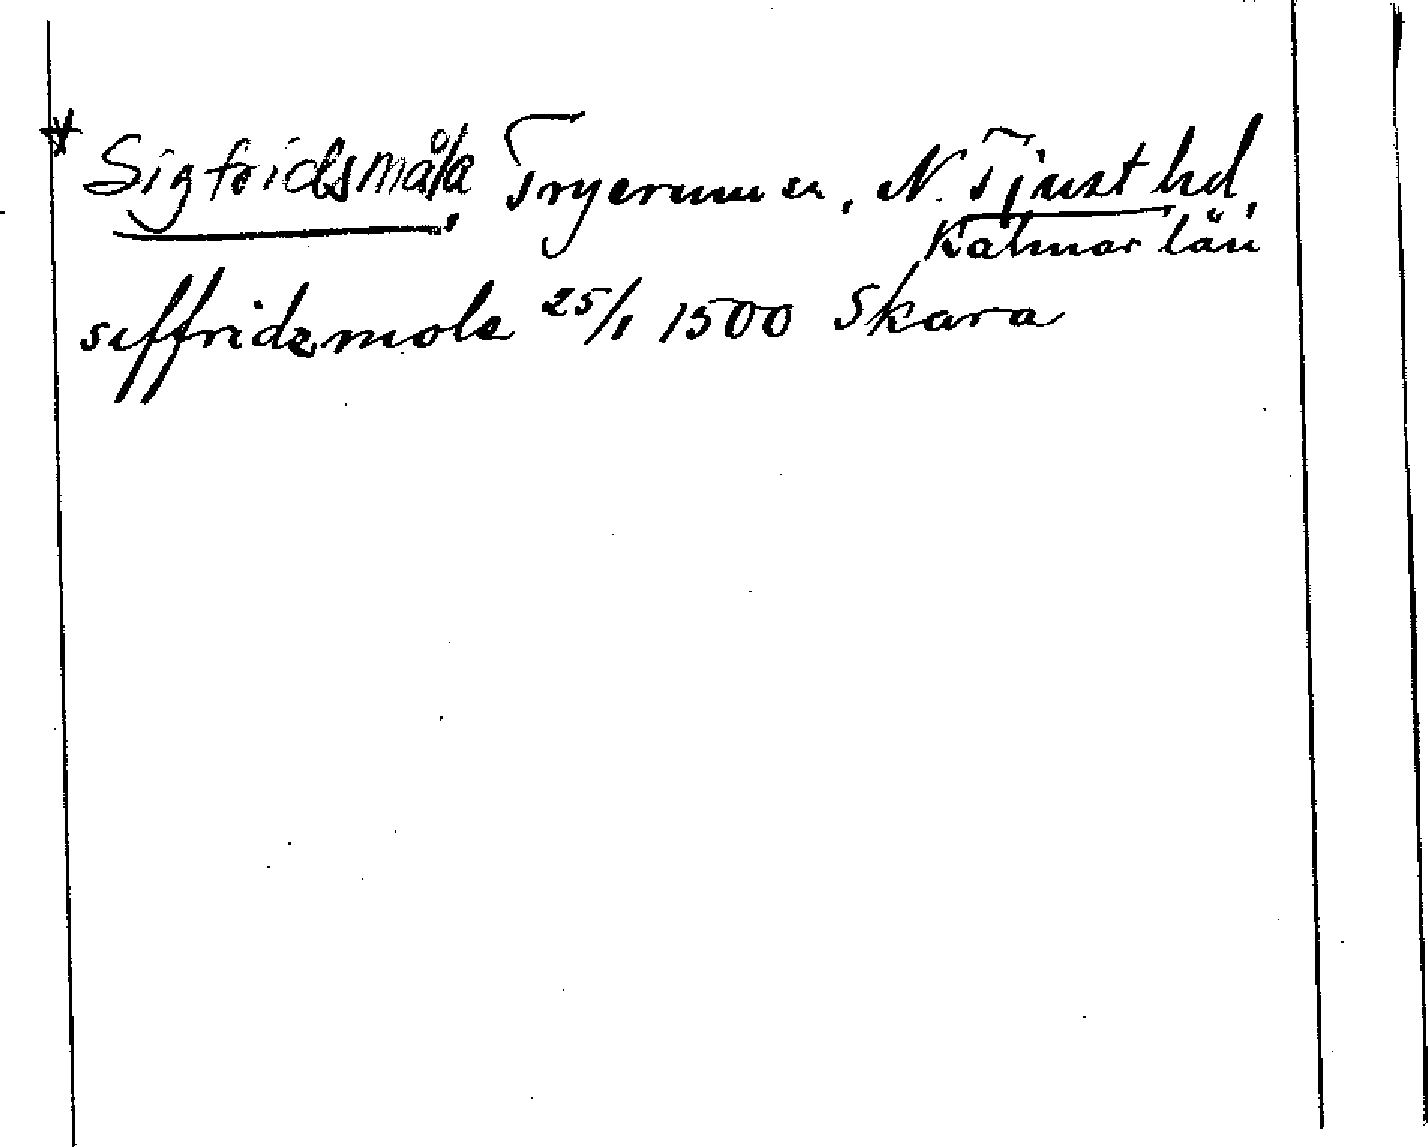 * Sigfridsmåla, Tryserums sn, N. Tjust hd,
Kalmar län
siffridzmole 25/1 1500 Skara